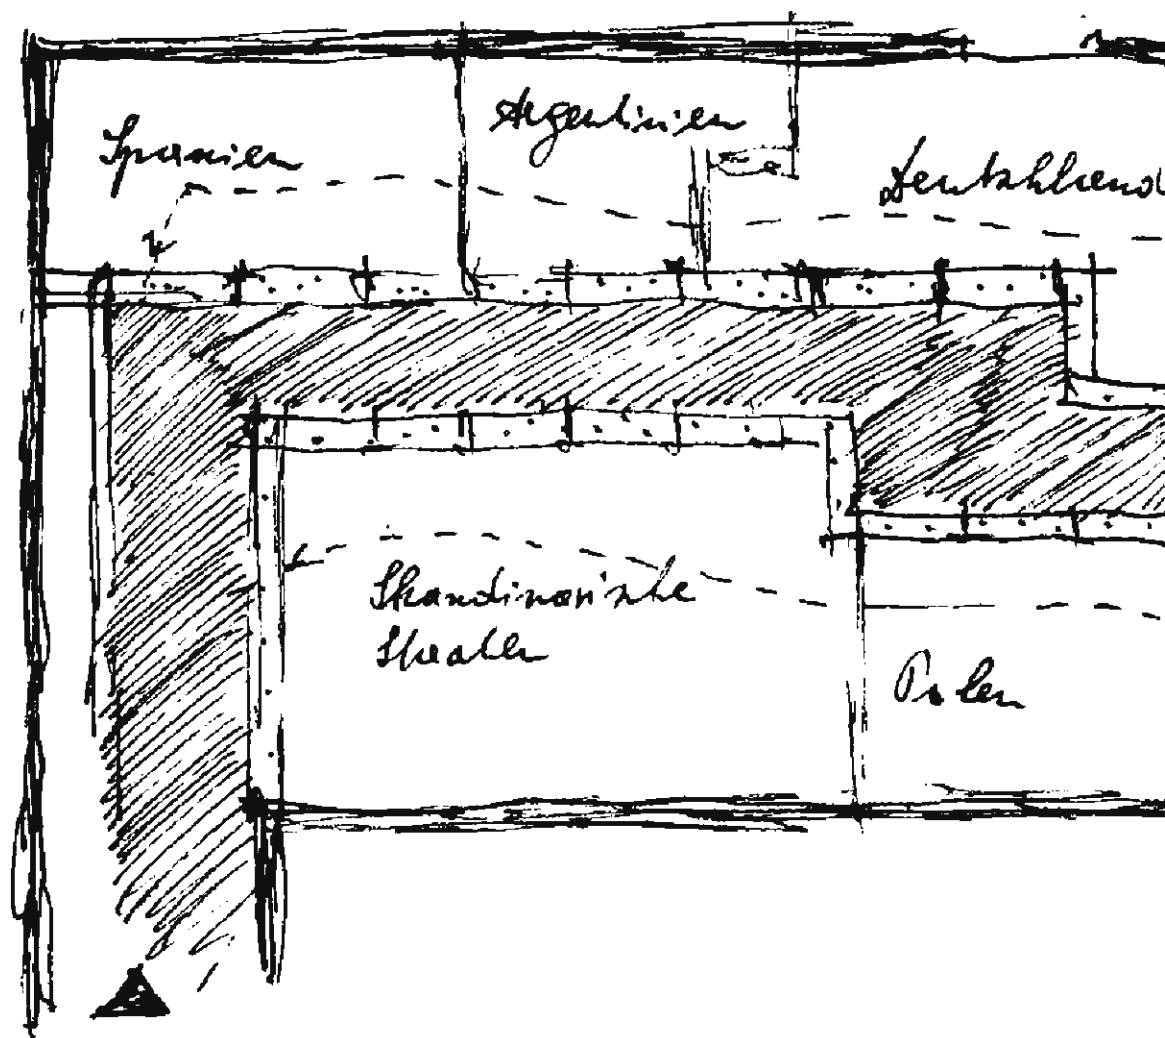 Spanien
Argentinien
Deutschland
Skandinavische
Staaten
Polen